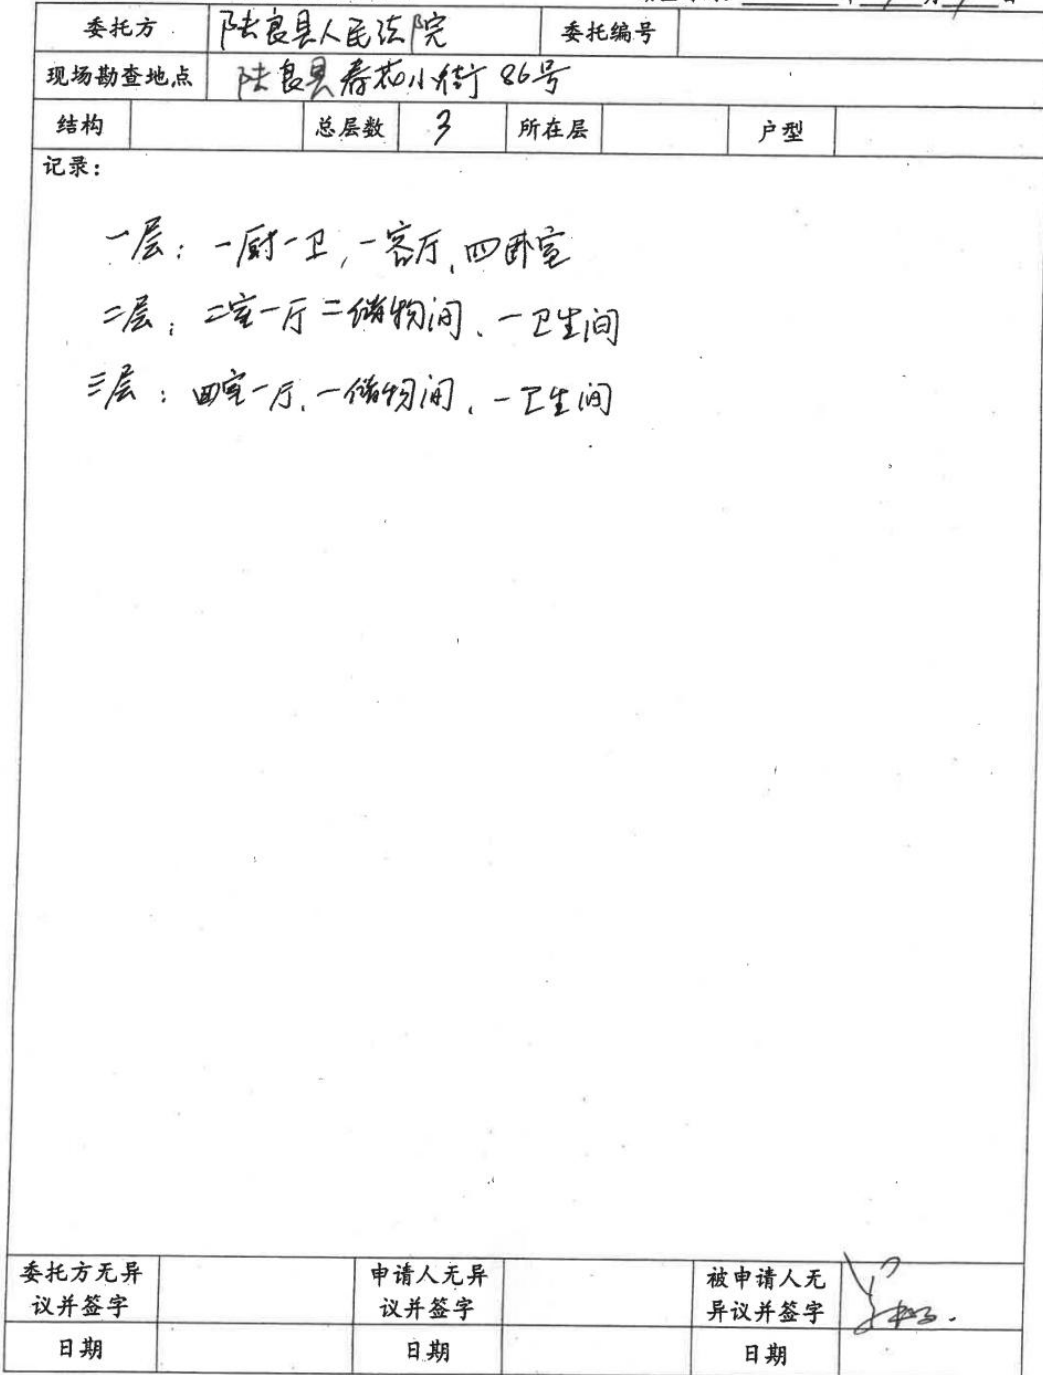 委托方 陆良县人民法院 委托编号
现场勘查地点 陆良县春花小街86号
结构 总层数 3 所在层 户型
记录：
一层：一厨一卫，一客厅、四卧室
二层：二室一厅二储物间、一卫生间
三层：四室一厅、一储物间、一卫生间
委托方无异 申请人无异 被申请人无
议并签字 议并签字 异议并签字
日期 日期 日期